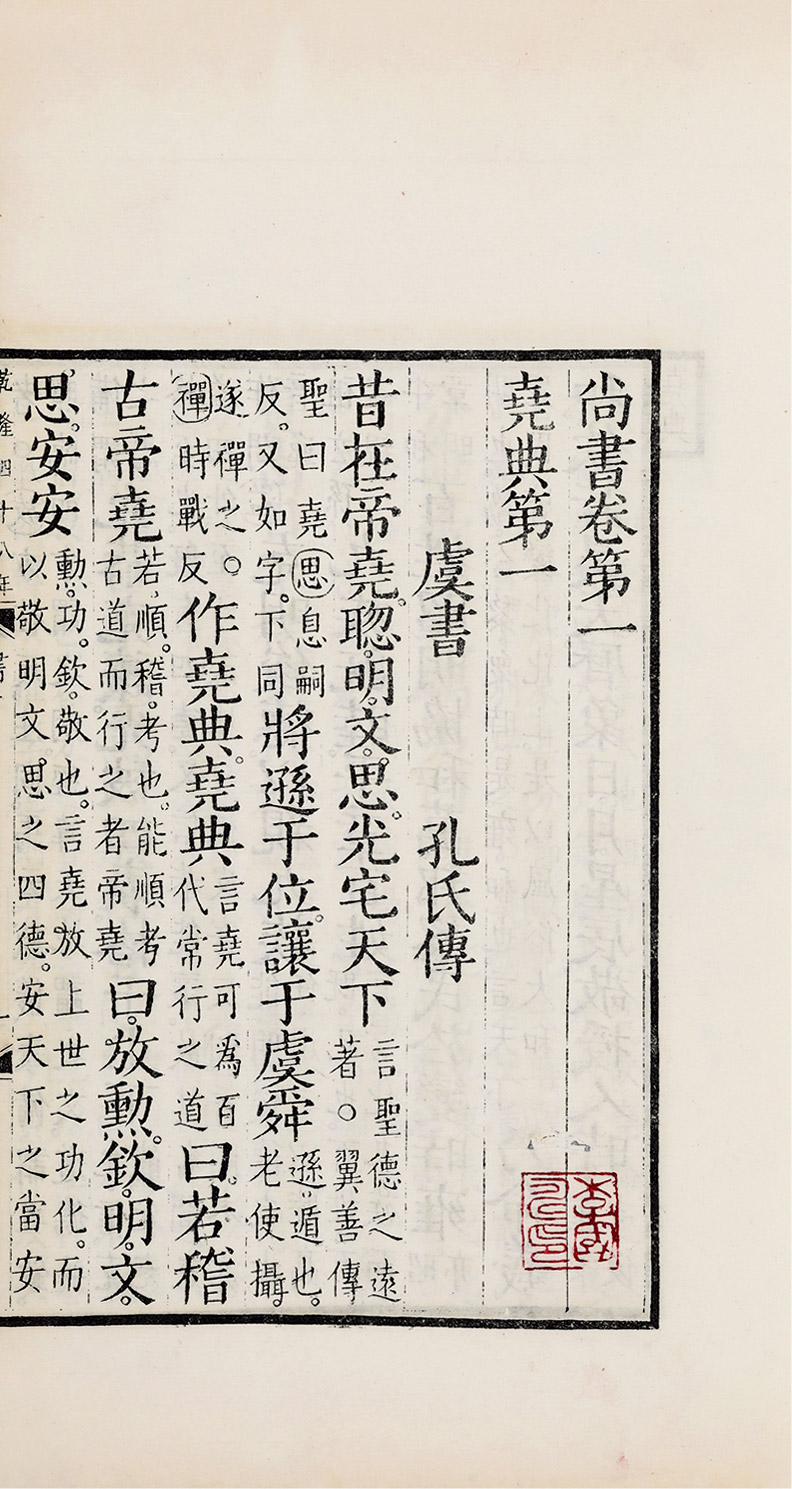 尚書卷第一
堯典第一
虞書 孔氏傳
昔在帝堯。聦。明。文。思。光宅天下言聖德之遠著○翼善傳
聖曰堯思息嗣反。又如字。下同將遜于位。讓于虞舜遜。遁也。老使攝。
遂禪之。○禪時戰反作堯典。堯典言堯可爲百代常行之道曰。若稽
古帝堯若。順。稽。考也。能順考古道而行之者帝堯曰。放勳。欽。明。文。
思。安安勳。功。欽。敬也。言堯放上世之功化。而以敬明文思之四德。安天下之當安
乾隆四十八年